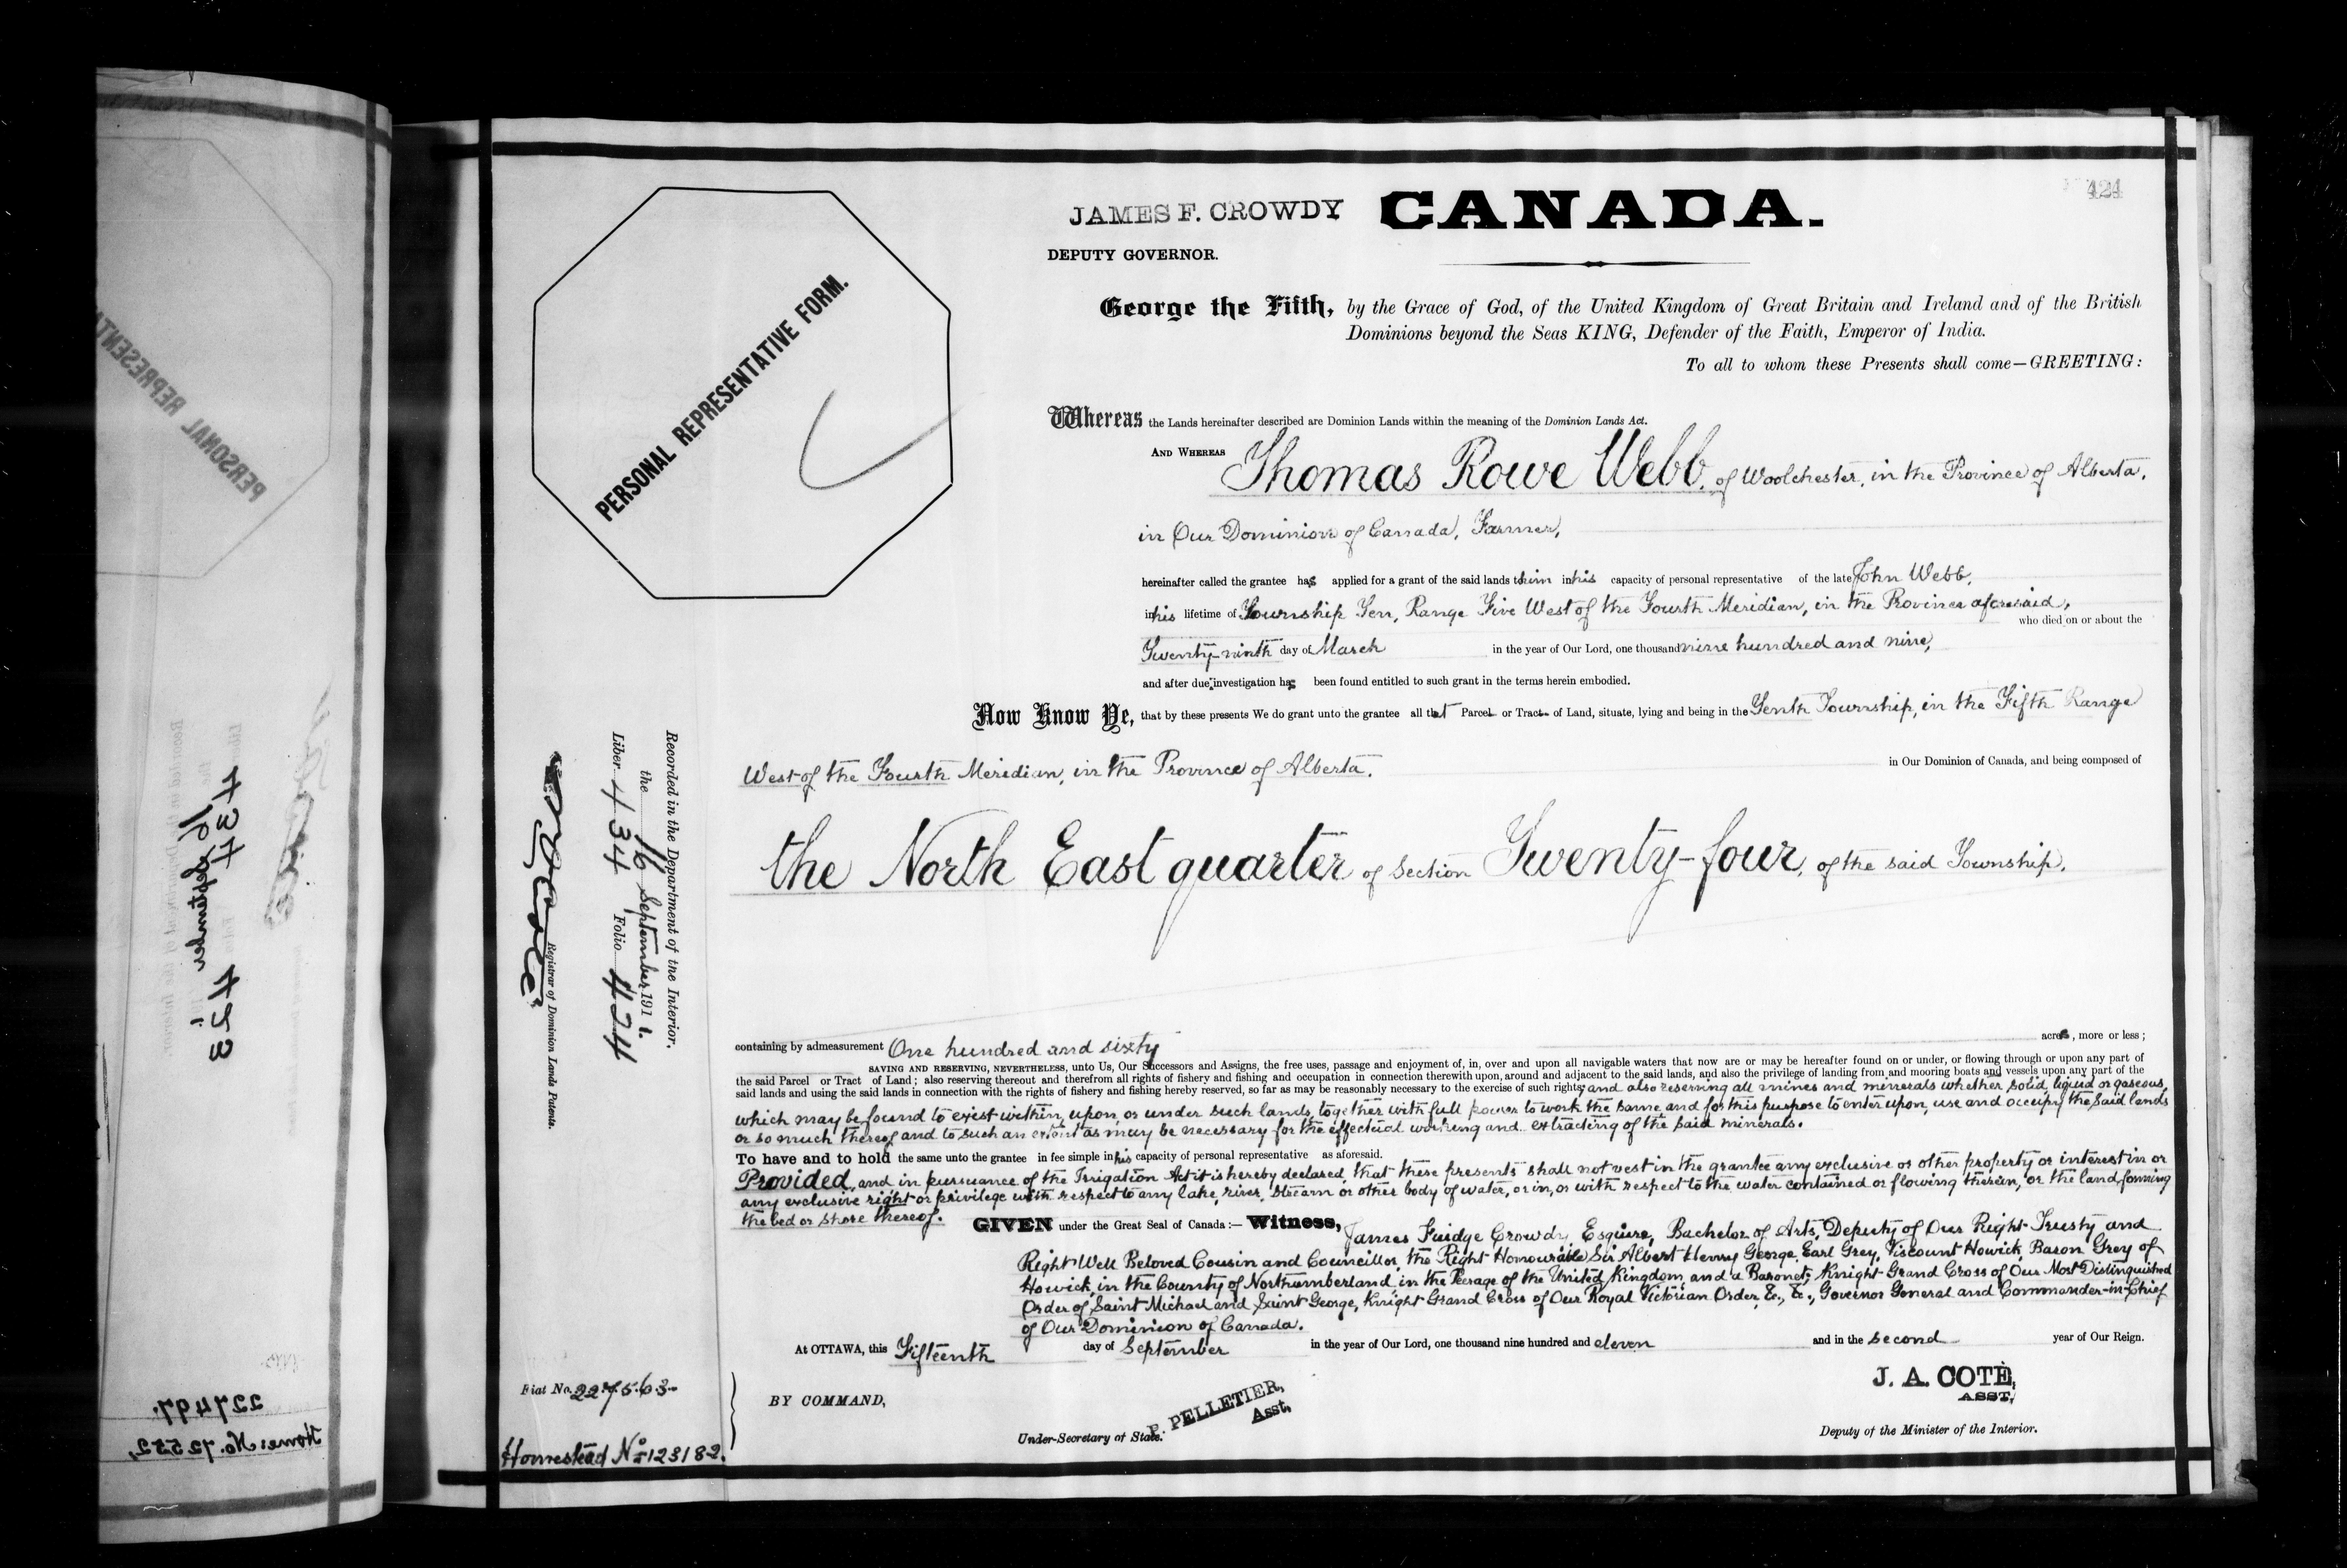 424
JAMES F. CROWDY CANADA.
DEPUTY GOVERNOR.
PERSONAL REPRESENTATIVE FORM.
George the Fifth, by the Grace of God, of the United Kingdom of Great Britain and Ireland and of the British
Dominions beyond the Seas KING, Defender of the Faith, Emperor of India.
To all to whom these Presents shall come—GREETING:
Whereas the Lands hereinafter described are Dominion Lands within the meaning of the Dominion Lands Act.
AND WHEREAS Thomas Rowe Webb, of Woolchester, in the Province of Alberta,
in Our Dominion of Canada, Farmer,
hereinafter called the grantee has applied for a grant of the said lands to him in his capacity of personal representative of the late John Webb,
in his lifetime of Township Ten, Range Five West of the Fourth Meridian, in the Province aforesaid,
who died on or about the
Twenty-ninth day of March in the year of Our Lord, one thousand nine hundred and nine,
and after due investigation has been found entitled to such grant in the terms herein embodied.
Now Know Ye, that by these presents We do grant unto the grantee all that Parcel or Tract of Land, situate, lying and being in the Tenth Township, in the Fifth Range
West of the Fourth Meridian, in the Province of Alberta, in Our Dominion of Canada, and being composed of
the North East quarter of Section Twenty-four, of the said Township.
containing by admeasurement One hundred and sixty acres, more or less;
SAVING AND RESERVING, NEVERTHELESS, unto Us, Our Successors and Assigns, the free uses, passage and enjoyment of, in, over and upon all navigable waters that now are or may be hereafter found on or under, or flowing through or upon any part of
the said Parcel or Tract of Land; also reserving thereout and therefrom all rights of fishery and fishing and occupation in connection therewith upon, around and adjacent to the said lands, and also the privilege of landing from and mooring boats and vessels upon any part of the
said lands and using the said lands in connection with the rights of fishery and fishing hereby reserved, so far as may be reasonably necessary to the exercise of such rights; and also reserving all mines and minerals whether solid, liquid or gaseous,
which may be found to exist within, upon, or under such lands, together with full power to work the same, and for this purpose to enter upon, use and occupy the said lands
or so much thereof and to such an extent as may be necessary for the effectual working and extracting of the said minerals.
To have and to hold the same unto the grantee in fee simple in his capacity of personal representative as aforesaid.
Provided, and in pursuance of the Irrigation Act it is hereby declared, that these presents shall not vest in the grantee any exclusive or other property or interest in or
any exclusive right or privilege with respect to any lake, river, stream or other body of water, or in, or with respect to the water contained or flowing therein, or the land forming
the bed or shore thereof. GIVEN under the Great Seal of Canada:— Witness, James Fuidge Crowdy, Esquire, Bachelor of Arts, Deputy of Our Right Trusty and
Right Well Beloved Cousin and Councillor, the Right Honourable Sir Albert Henry George, Earl Grey, Viscount Howick, Baron Grey of
Howick, in the County of Northumberland, in the Peerage of the United Kingdom, and a Baronet; Knight Grand Cross of Our Most Distinguished
Order of Saint Michael and Saint George, Knight Grand Cross of Our Royal Victorian Order, &c., &c., Governor General and Commander-in-Chief
of Our Dominion of Canada.
At OTTAWA, this Fifteenth day of September in the year of Our Lord, one thousand nine hundred and eleven and in the second year of Our Reign.
BY COMMAND,
P. PELLETIER,
Asst.
Under-Secretary of State.
J. A. COTÉ,
ASST,
Deputy of the Minister of the Interior.
Recorded in the Department of the Interior.
the 16 September 1911.
Liber 434 Folio 424
Registrar of Dominion Lands Patents.
Fiat No. 227563
Homestead No 123182.
PERSONAL REPRESENT
434 423
16 September
227497.
Home: No. 72552,